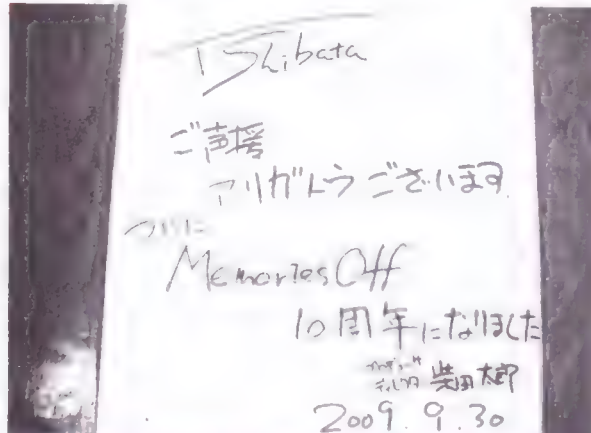 T Shibata
ご声援
アリガトウございます
ついに
Memories Off
10周年になりました
柴田太郎
2009.9.30